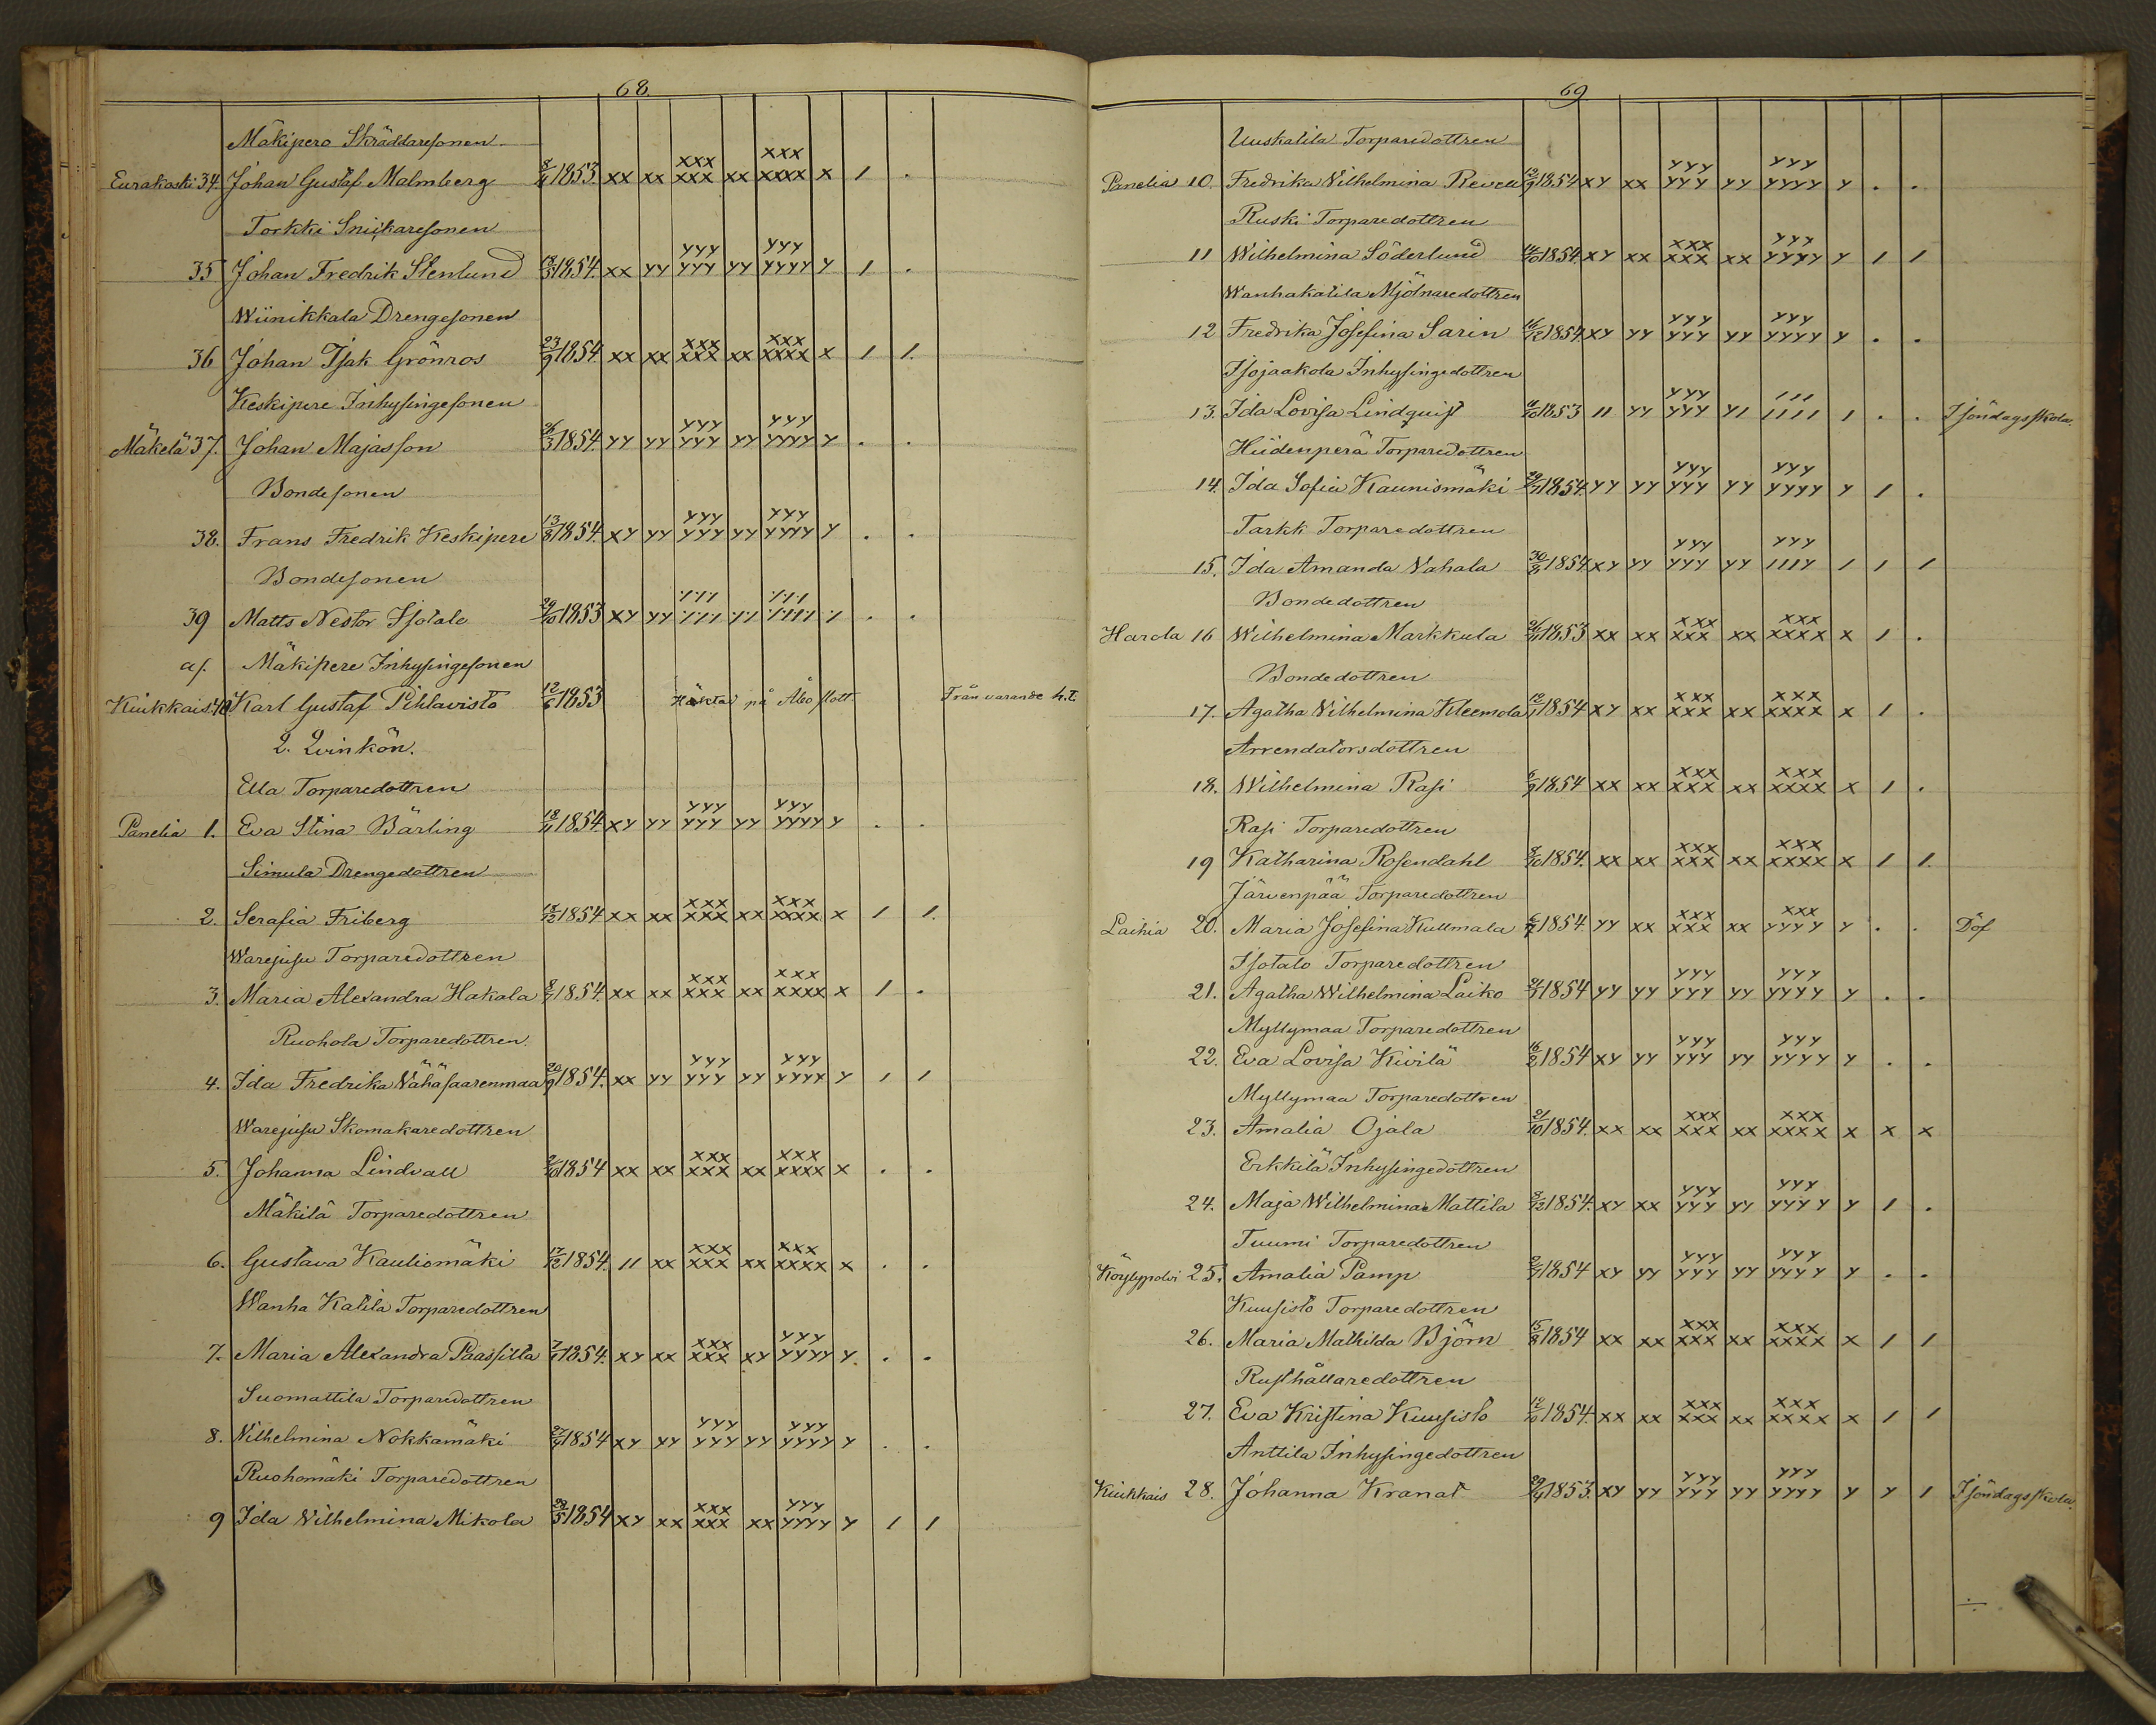 68.
Mäkipere Skräddaresonen
Eurakoski 34. Johan Gustaf Malmberg 8/11 1853. xx xx xxx xxx xx xxx xxxx x 1 .
Torkki Snickaresonen
35 Johan Fredrik Stenlund 1854. xx yy yyy yyy yy yyy yyyy y 1 .
Wiinikkala Drengesonen
36 Johan Isak Grönros 23/9 1854. xx xx xxx xxx xx xxx xxxx x 1 1.
Keskipere Inhysingesonen
Mäkelä 37. Johan Majasson 26/3 1854. yy yy yyy yyy yy yyy yyyy y . .
Bondesonen
38. Frans Fredrik Keskipere 13/8 1854. xy yy yyy yyy yy yyy yyyy y . .
Bondesonen
39 Matts Nestor Isotalo 29/10 1853 xy yy
af. Mäkipere Inhysingesonen
Kiukkais. 40. Karl Gustaf Pihlavisto 12/6 1853 Häktad på Åbo slott. Från varande h.t.
2. Qvinkön.
Ella Torparedottren
Panelia 1. Eva Stina Bärling 18/11 1854. xy yy yyy yyy yy yyy yyyy y . .
Simula Drengedottren
2. Serafia Friberg 18/12 1854 xx xx xxx xxx xx xxx xxxx x 1 1.
Warejusu Torparedottren
3. Maria Alexandra Hakala 8/7 1854. xx xx xxx xxx xx xxx xxxx x 1 .
Ruohola Torparedottren.
4. Ida Fredrika Wähäsaarenmaa 20/9 1854. xx yy yyy yyy yy yyy yyyy y 1 1
Warejusu Skomakaredottren
5. Johanna Lindvall 1854 xx xx xxx xxx xx xxx xxxx x . .
Mäkilä Torparedottren
6. Gustava Kauliomäki 17/12 1854. 11 xx xxx xxx xx xxx xxxx x . .
Wanha Katila Torparedottren
7. Maria Alexandra Paassilta 1854. xy xx xxx xxx xy yyy yyyy y. . .
Suomattila Torparedottren
8. Wilhelmina Nokkamäki 1854 xy yy yyy yyy yy yyy yyyy y . .
Ruohomäki Torparedottren
9 Ida Wilhelmina Mikola 28/5 1854 xy xx xxx xxx xx yyy yyyy y 1 1
69
Uuskatila Torparedottren
Panelia 10. Fredrika Wilhelmina Revell 12/9 1854 xy xx yyy yyy yy yyy yyyy y . .
Ruski Torparedottren
11 Wilhelmina Söderlund 1854. xy xx xxx xxx xx yyy yyyy y 1 1
Wanhakatila Mjölnaredottren
12 Fredrika Josefina Sarin 16/12 1854. xy yy yyy yyy yy yyy yyyy y . .
Isojaakola Inhysingedottren
13. Ida Lovisa Lindquist 1853 11 yy yyy yyy y1 111 1111 1 . . I söndagsskola.
Hiidenperä Torparedottren
14. Ida Sofia Kaunismäki 1854. yy yy yyy yyy yy yyy yyyy y 1 .
Tarkk Torparedottren
15. Ida Amanda Nahala 1854. xy yy yyy yyy yy yyy 111y 1 1 1
Bondedottren
Harola 16 Wilhelmina Markkula 26/11 1853 xx xx xxx xxx xx xxx xxxx x 1 .
Bondedottren
17. Agatha Wilhelmina Kleemola 12/1 1854 xy xx xxx xxx xx xxx xxxx x 1 .
Arrendatorsdottren
18. Wilhelmina Rasi 6/9 1854 xx xx xxx xxx xx xxx xxxx x 1 .
Rasi Torparedottren
19 Katharina Rosendahl 8/10 1854. xx xx xxx xxx xx xxx xxxx x 1 1.
Järvenpää Torparedottren
Laihia 20. Maria Josefina Kullmala 1854. yy xx xxx xxx xx xxx yyyy y . . Döf
Isotalo Torparedottren
21. Agatha Wilhelmina Laiko 1854 yy yy yyy yyy yy yyy yyyy y . .
Myllymaa Torparedottren
22. Eva Lovisa Kivilä 16/2 1854 xy yy yyy yyy yy yyy yyyy y . .
Myllymaa Torparedottren
23. Amalia Ojala 21/10 1854. xx xx xxx xxx xx xxx xxxx x x x
Erkkilä Inhysingedottren
24. Maja Wilhelmina Mattila 1854. xy xx yyy yyy yy yyy yyyy y 1 .
Tuumi Torparedottren
Köylypolvi 25. Amalia Pamp 1854 xy yy yyy yyy yy yyy yyyy y . .
Kuusisto Torparedottren
26. Maria Mathilda Björn 15/8 1854 xx xx xxx xxx xx xxx xxxx x 1 1
Rusthållaredottren
27. Eva Kristina Kuusisto 12/10 1854. xx xx xxx xxx xx xxx xxxx x 1 1
Anttila Inhysingedottren
Kiukkais 28. Johanna Kranat 1853. xy yy yyy yyy yy yyy yyyy y y 1 I söndagsskola.